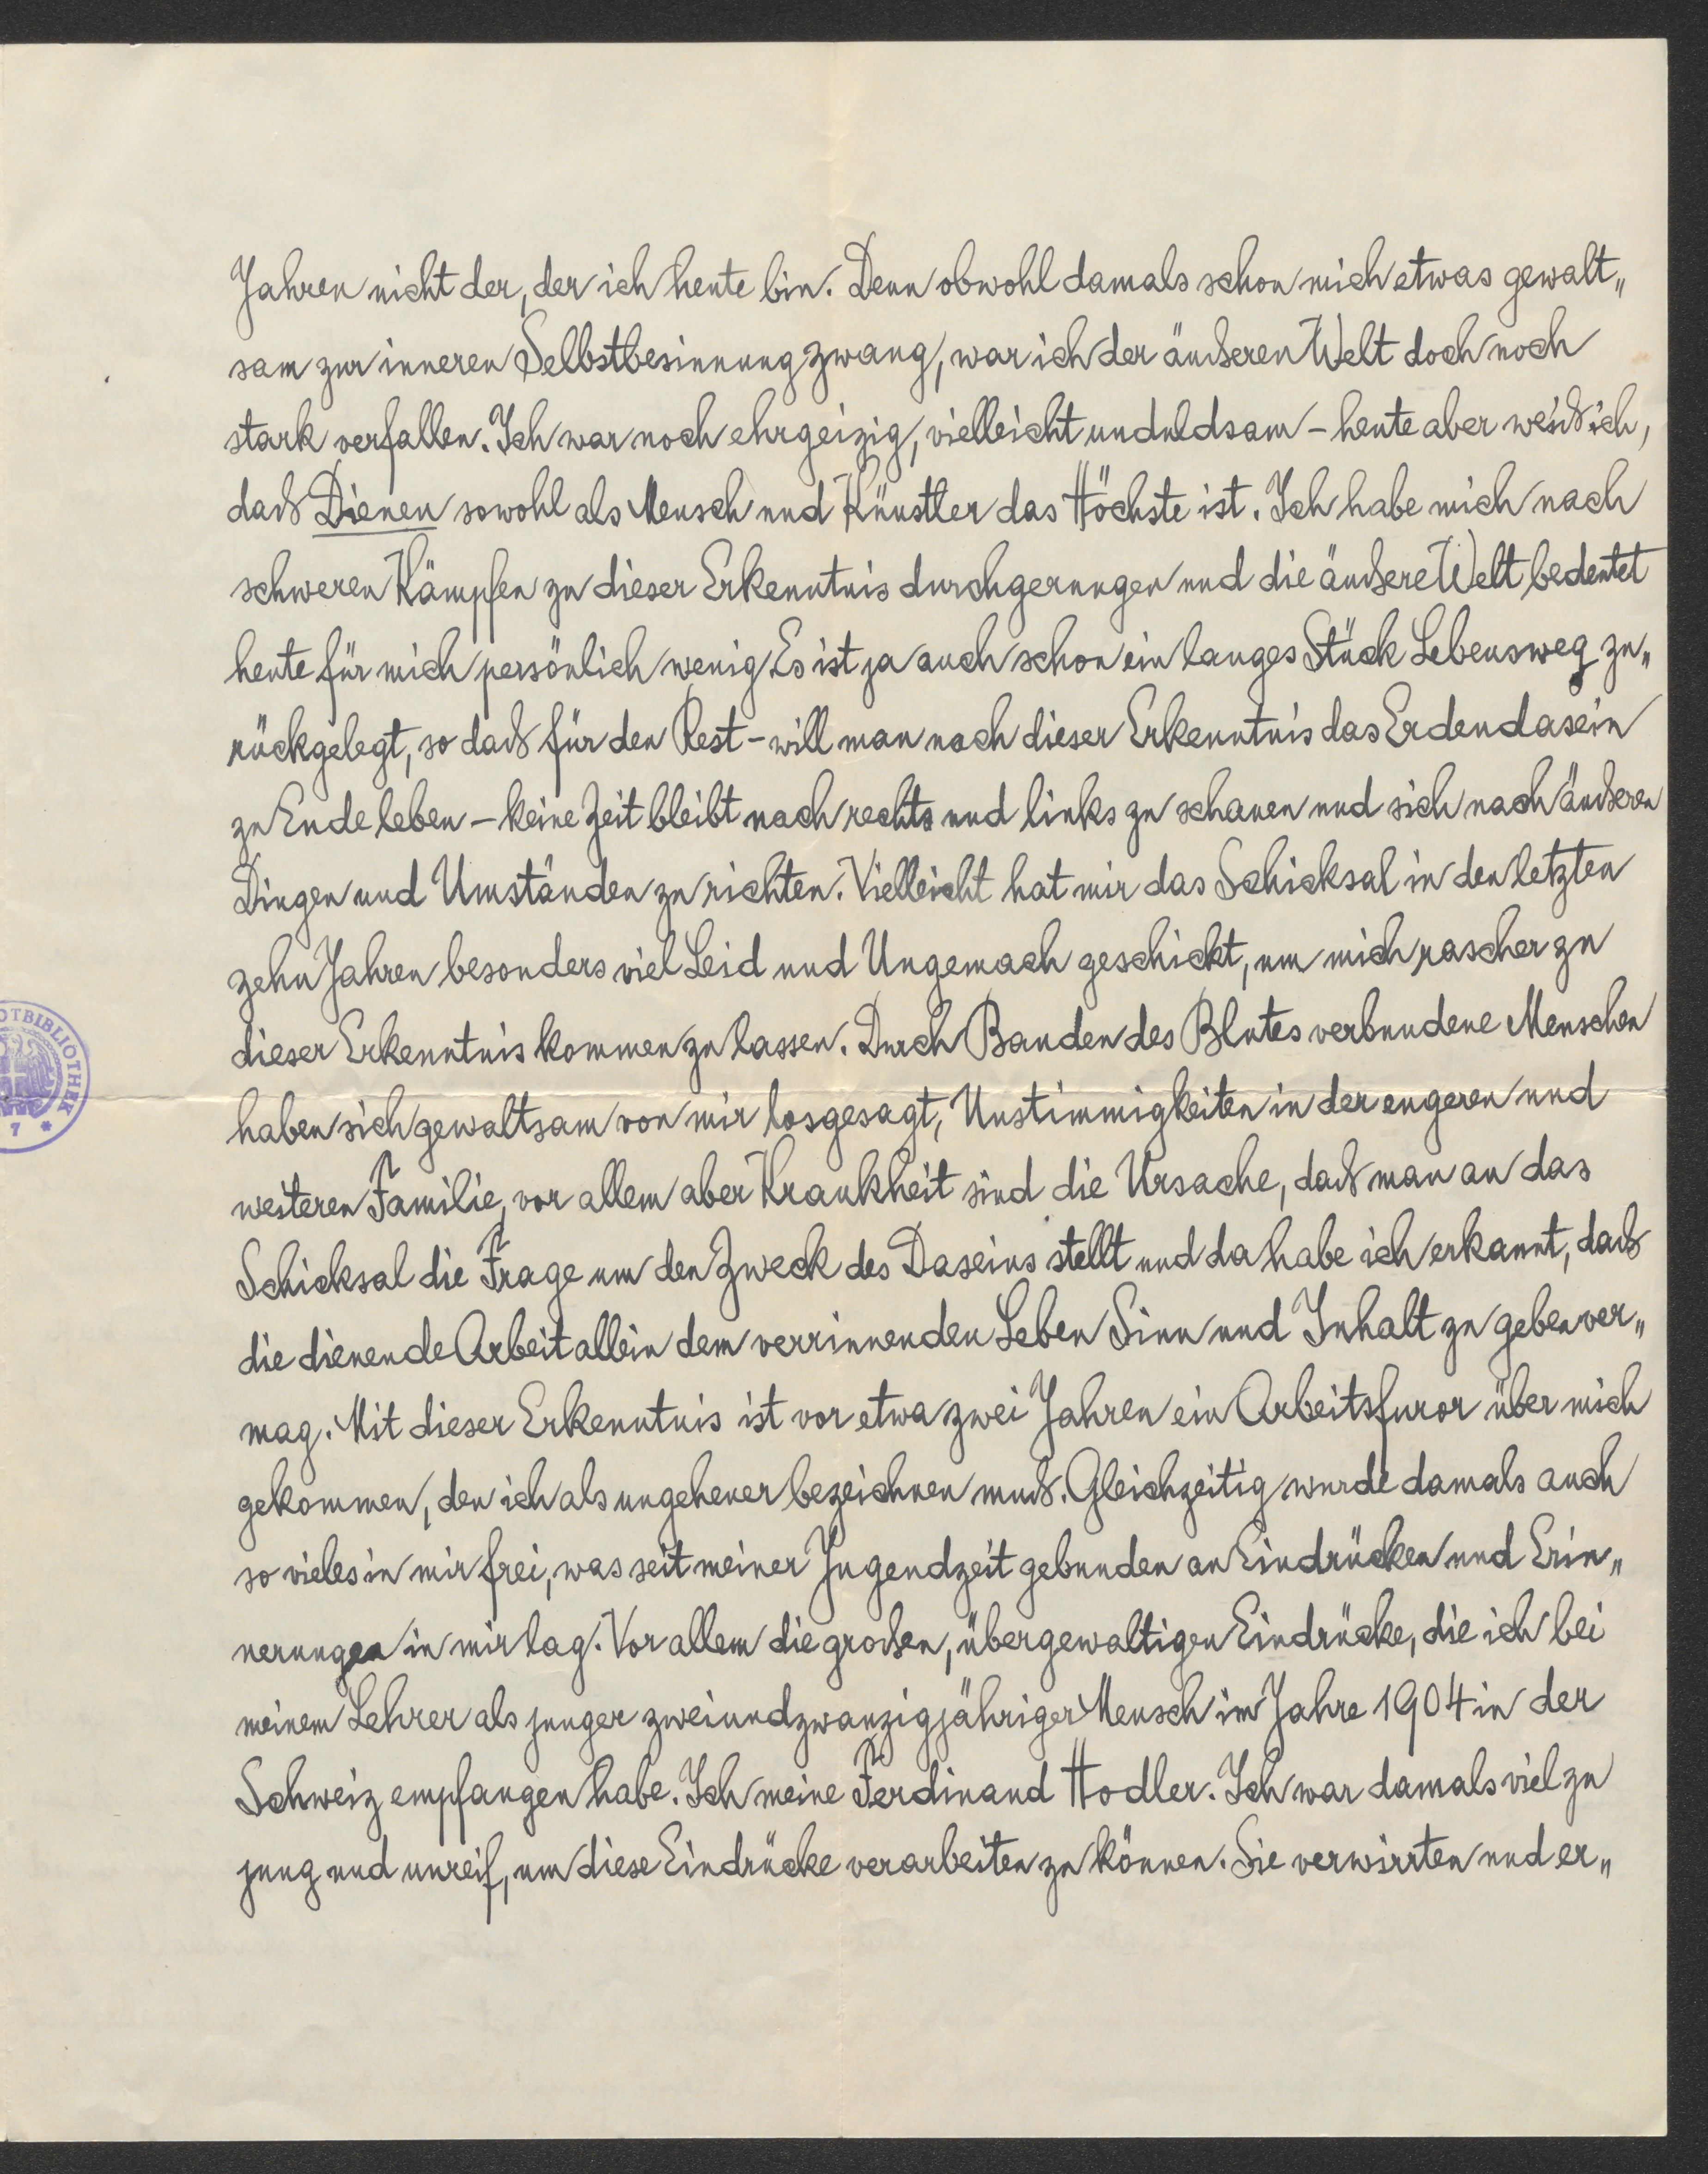 Jahren nicht der, der ich heute bin. Denn obwohl damals schon mich etwas gewalt„
sam zur inneren Selbstbesinnung zwang, war ich der äußeren Welt doch noch
stark verfallen. Ich war noch ehrgeizig, vielleicht unduldsam – heute aber weiß ich,
daß Dienen sowohl als Mensch und Künstler das Höchste ist. Ich habe mich nach
schweren Kämpfen zu dieser Erkenntnis durchgerungen und die äußere Welt bedeutet
heute für mich persönlich wenig. Es ist ja auch schon ein langes Stück Lebensweg zu„
rückgelegt, so daß für den Rest – will man nach dieser Erkenntnis das Erdendasein
zu Ende leben – keine Zeit bleibt nach rechts und links zu schauen und sich nach äußeren
Dingen und Umständen zu richten. Vielleicht hat mir das Schicksal in den letzten
zehn Jahren besonders viel Leid und Ungemach geschickt, um mich rascher zu
dieser Erkenntnis kommen zu lassen. Durch Banden des Blutes verbundene Menschen
haben sich gewaltsam von mir losgesagt, Unstimmigkeiten in der engeren und
weiteren Familie, vor allem aber Krankheit sind die Ursache, daß man an das
Schicksal die Frage um den Zweck des Daseins stellt und da habe ich erkannt, daß
die dienende Arbeit allein dem verrinnenden Leben Sinn und Inhalt zu geben ver„
mag. Mit dieser Erkenntnis ist vor etwa zwei Jahren ein Arbeitsfuror über mich
gekommen, den ich als ungeheuer bezeichnen muß. Gleichzeitig wurde damals auch
so vieles in mir frei, was seit meiner Jugendzeit gebunden an Eindrücken und Erin„
nerungen in mir lag. Vor allem die großen, übergewaltigen Eindrücke, die ich bei
meinem Lehrer als junger zweiundzwanzigjähriger Mensch im Jahre 1904 in der
Schweiz empfangen habe. Ich meine Ferdinand Hodler. Ich war damals viel zu
jung und unreif, um diese Eindrücke verarbeiten zu können. Sie verwirrten und er„
OTBIBLIOTHEK
7 *